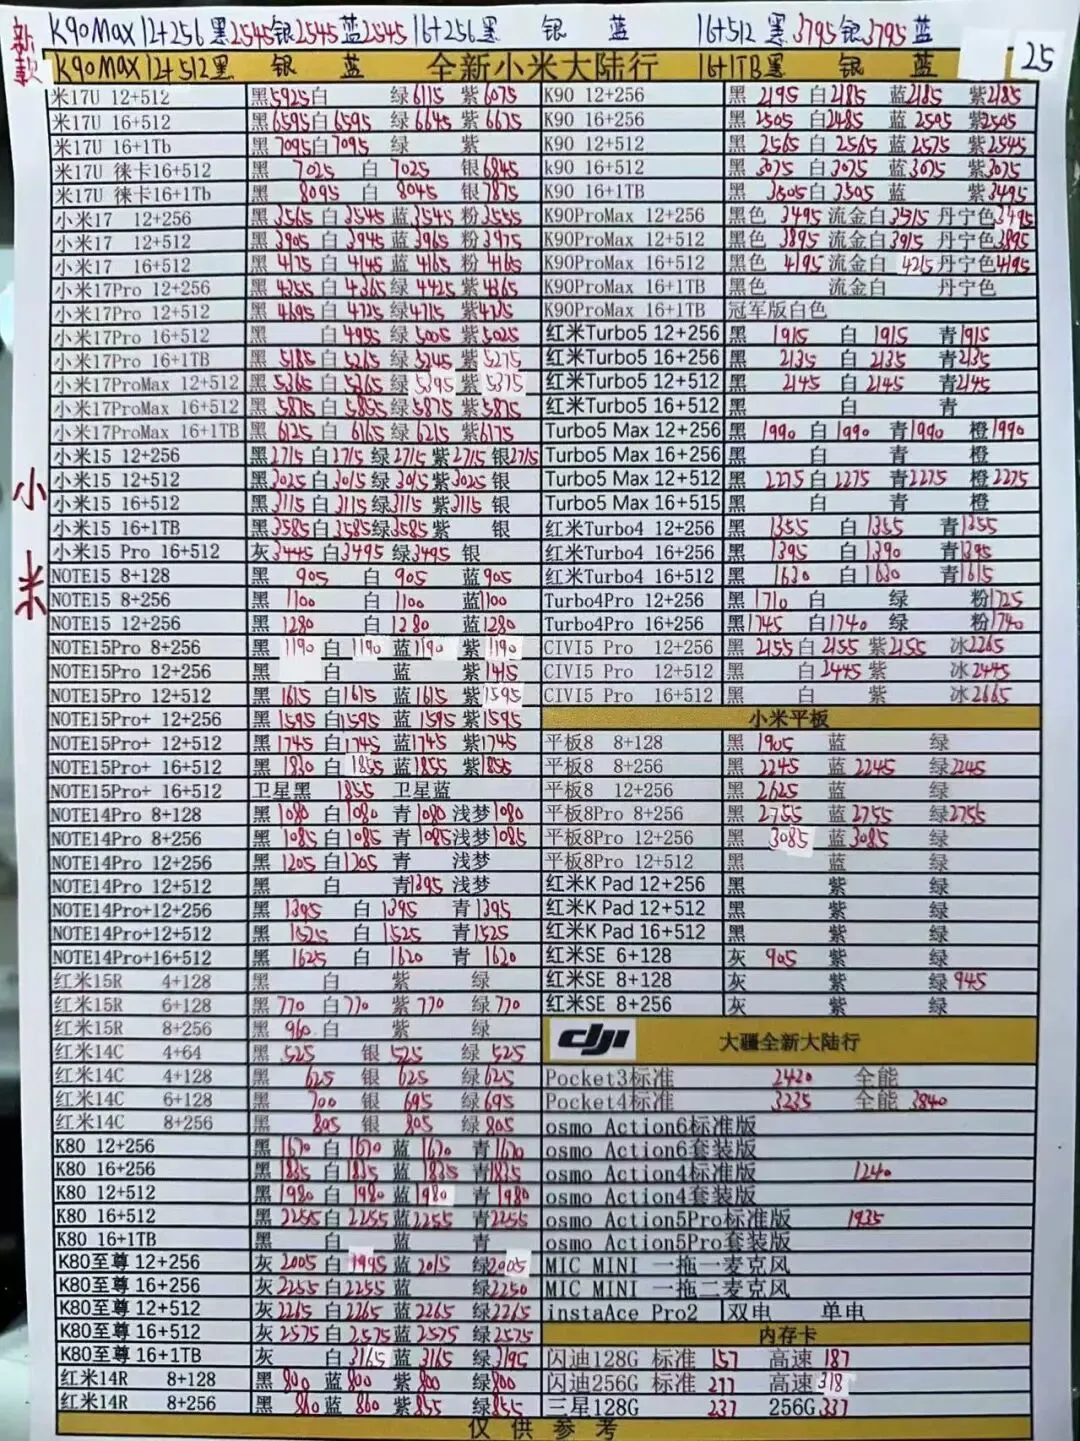 新款 K90Max 12+256 黑2545银2545蓝2545 16+256黑 银 蓝 16+512 黑3795银3795蓝
K90MAX12+512黑 银 蓝 全新小米大陆行 16+1TB黑 银 蓝 25
小米
米17U 12+512 黑5925白 绿6115 紫6075
米17U 16+512 黑6595白6595 绿6645 紫6675
米17U 16+1Tb 黑7095白7095 绿 紫
米17U 徕卡16+512 黑 7025 白 7025 银6845
米17U 徕卡16+1Tb 黑 8095 白 8045 银7875
小米17 12+256 黑3565 白3545 蓝3545 粉3555
小米17 12+512 黑3905 白3945 蓝3965 粉3975
小米17 16+512 黑4175 白4145 蓝4165 粉4165
小米17Pro 12+256 黑4355 白4365 绿4425 紫4365
小米17Pro 12+512 黑4695 白4725 绿4715 紫4735
小米17Pro 16+512 黑 白4955 绿5005 紫5025
小米17Pro 16+1TB 黑5185 白5265 绿5245 紫5275
小米17ProMax 12+512 黑5365 白5365 绿5395 紫5375
小米17ProMax 16+512 黑5875 白5855 绿5875 紫5875
小米17ProMax 16+1TB 黑6125 白6165 绿6215 紫6175
小米15 12+256 黑2715 白2715 绿2715 紫2715 银2715
小米15 12+512 黑3025 白3015 绿3015 紫3025 银
小米15 16+512 黑3115 白3115 绿3115 紫3115 银
小米15 16+1TB 黑3585白3585绿3585紫 银
小米15 Pro 16+512 灰3445 白3495 绿3495 银
NOTE15 8+128 黑 905 白 905 蓝905
NOTE15 8+256 黑 1100 白 1100 蓝1100
NOTE15 12+256 黑 1280 白 1280 蓝1280
NOTE15Pro 8+256 黑 1190 白 1190 蓝1190 紫1190
NOTE15Pro 12+256 黑 白 蓝 紫1415
NOTE15Pro 12+512 黑 1615 白1615 蓝1615 紫1595
NOTE15Pro+ 12+256 黑 1595 白1595 蓝 1595 紫1595
NOTE15Pro+ 12+512 黑 1745 白1745 蓝1745 紫1745
NOTE15Pro+ 16+512 黑 1830 白1855 蓝1855 紫1855
NOTE15Pro+ 16+512 卫星黑 1855 卫星蓝
NOTE14Pro 8+128 黑 1080 白1080 青1080 浅梦1080
NOTE14Pro 8+256 黑 1085 白1085 青1085浅梦1085
NOTE14Pro 12+256 黑 1205 白1205 青 浅梦
NOTE14Pro 12+512 黑 白 青1395 浅梦
NOTE14Pro+12+256 黑 1395 白 1395 青1395
NOTE14Pro+12+512 黑 1525 白 1525 青1525
NOTE14Pro+16+512 黑 1625 白 1620 青 1620
红米15R 4+128 黑 白 紫 绿
红米15R 6+128 黑 770 白770 紫770 绿770
红米15R 8+256 黑 960 白 紫 绿
红米14C 4+64 黑 525 银 525 绿 525
红米14C 4+128 黑 625 银 625 绿625
红米14C 6+128 黑 700 银 695 绿695
红米14C 8+256 黑 805 银 805 绿805
K80 12+256 黑1670 白1670 蓝1670 青1670
K80 16+256 黑1835 白1835 蓝1835 青1835
K80 12+512 黑1980 白1980 蓝1980 青1980
K80 16+512 黑2255白2255蓝2255 青2255
K80 16+1TB 黑 白 蓝 青
K80至尊 12+256 灰2005 白1995 蓝2015 绿2005
K80至尊 16+256 灰2255白2255蓝 绿2250
K80至尊 12+512 灰2265白2265蓝2265 绿2265
K80至尊 16+512 灰2575白2575蓝2575 绿2575
K80至尊 16+1TB 灰 白3165 蓝3165 绿3195
红米14R 8+128 黑800 蓝800 紫800 绿800
红米14R 8+256 黑860 蓝860 紫855 绿855
K90 12+256 黑 2195 白2185 蓝2185 紫2185
K90 16+256 黑 2505 白2485 蓝2505 紫2505
K90 12+512 黑 2565 白2565 蓝2575 紫2545
k90 16+512 黑 3075 白3075 蓝3075 紫3075
K90 16+1TB 黑 3505白3505 蓝 紫3495
K90ProMax 12+256 黑色 3495 流金白3515 丹宁色3495
K90ProMax 12+512 黑色 3895 流金白3915 丹宁色3895
K90ProMax 16+512 黑色 4195 流金白 4215丹宁色4195
K90ProMax 16+1TB 黑色 流金白 丹宁色
K90ProMax 16+1TB 冠军版白色
红米Turbo5 12+256 黑 1915 白 1915 青1915
红米Turbo5 16+256 黑 2135 白 2135 青2135
红米Turbo5 12+512 黑 2145 白 2145 青2145
红米Turbo5 16+512 黑 白 青
Turbo5 Max 12+256 黑 1990 白1990 青1990 橙1990
Turbo5 Max 16+256 黑 白 青 橙
Turbo5 Max 12+512 黑 2275白2275 青2275 橙2275
Turbo5 Max 16+515 黑 白 青 橙
红米Turbo4 12+256 黑 1355 白1355 青1355
红米Turbo4 16+256 黑 1395 白1390 青1395
红米Turbo4 16+512 黑 1630 白1630 青1615
Turbo4Pro 12+256 黑1710 白 绿 粉1725
Turbo4Pro 16+256 黑1745 白1740 绿 粉1740
CIVI5 Pro 12+256 黑 2155白2155 紫2155 冰2265
CIVI5 Pro 12+512 黑 白2445紫 冰2445
CIVI5 Pro 16+512 黑 白 紫 冰2665
小米平板
平板8 8+128 黑 1905 蓝 绿
平板8 8+256 黑 2245 蓝 2245 绿2245
平板8 12+256 黑 2625 蓝 绿
平板8Pro 8+256 黑 2755 蓝 2755 绿2755
平板8Pro 12+256 黑 3085 蓝3085 绿
平板8Pro 12+512 黑 蓝 绿
红米K Pad 12+256 黑 紫 绿
红米K Pad 12+512 黑 紫 绿
红米K Pad 16+512 黑 紫 绿
红米SE 6+128 灰 905 紫 绿
红米SE 8+128 灰 紫 绿945
红米SE 8+256 灰 紫 绿
dji 大疆全新大陆行
Pocket3标准 2420 全能
Pocket4标准 3235 全能 3840
osmo Action6标准版
osmo Action6套装版
osmo Action4标准版 1240
osmo Action4套装版
osmo Action5Pro标准版 1935
osmo Action5Pro套装版
MIC MINI 一拖一麦克风
MIC MINI 一拖二麦克风
instaAce Pro2 双电 单电
内存卡
闪迪128G 标准 157 高速187
闪迪256G 标准 277 高速318
三星128G 237 256G337
仅供参考